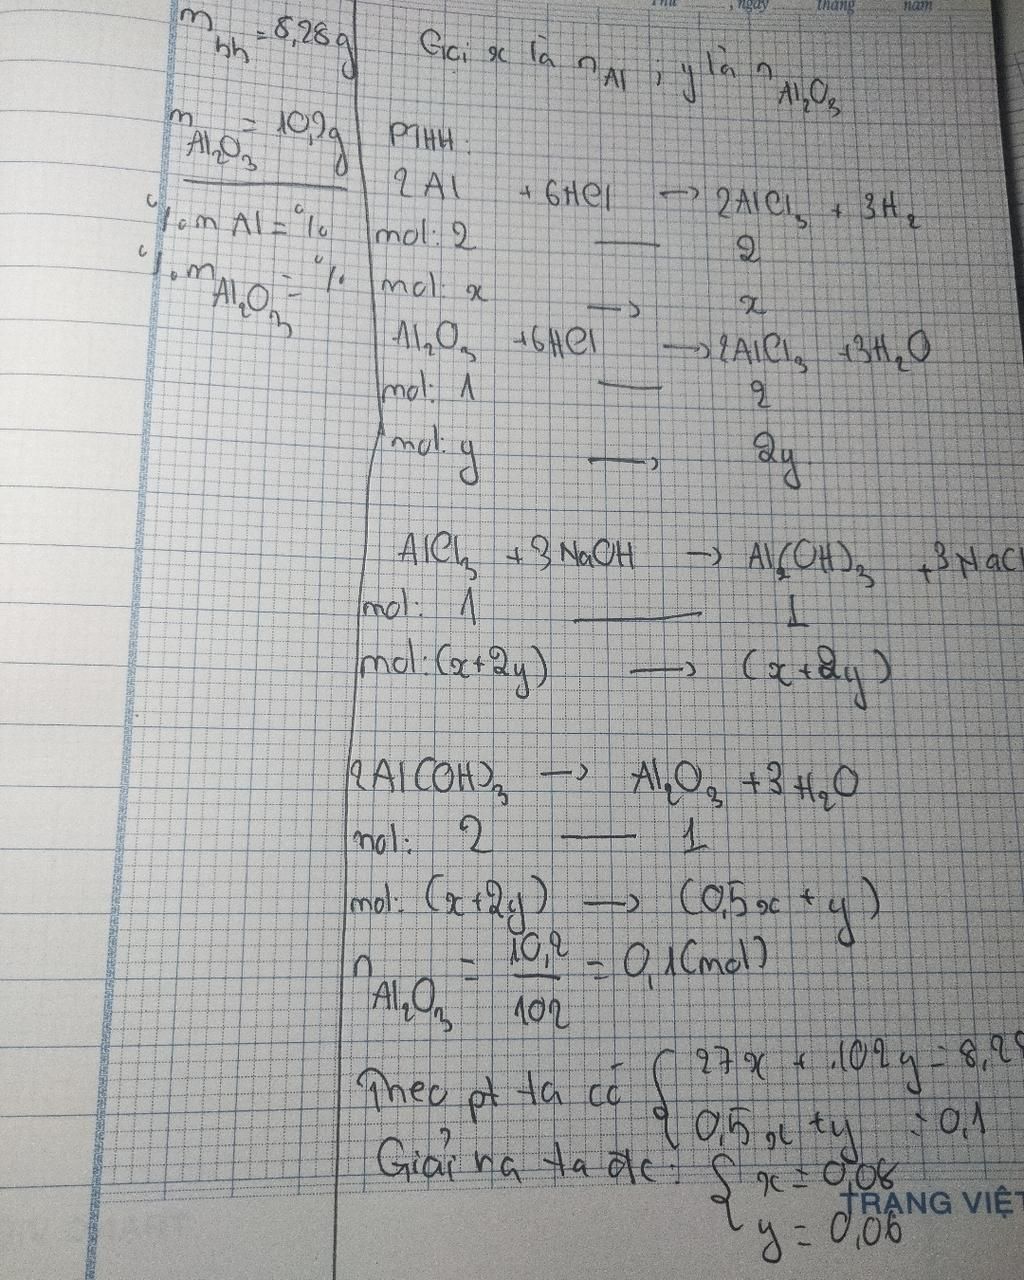 Thứ , ngày tháng năm
m hh = 8,28g
m Al₂O₃ = 10,2g
% m Al = %
% m Al₂O₃ = %
Gọi x là n Al ; y là n Al₂O₃
PTHH:
2Al + 6HCl → 2AlCl₃ + 3H₂
mol: 2 — 2
mol: x → x
Al₂O₃ + 6HCl → 2AlCl₃ + 3H₂O
mol: 1 — 2
mol: y → 2y
AlCl₃ + 3NaOH → Al(OH)₃ + 3NaCl
mol: 1 — 1
mol: (x+2y) → (x+2y)
2Al(OH)₃ → Al₂O₃ + 3H₂O
mol: 2 — 1
mol: (x+2y) → (0,5x + y)
n Al₂O₃ = 10,2/102 = 0,1(mol)
Theo pt ta có { 27x + 102y = 8,28
0,5x + y = 0,1
Giải ra ta đc: { x = 0,08
y = 0,06
TRANG VIỆT